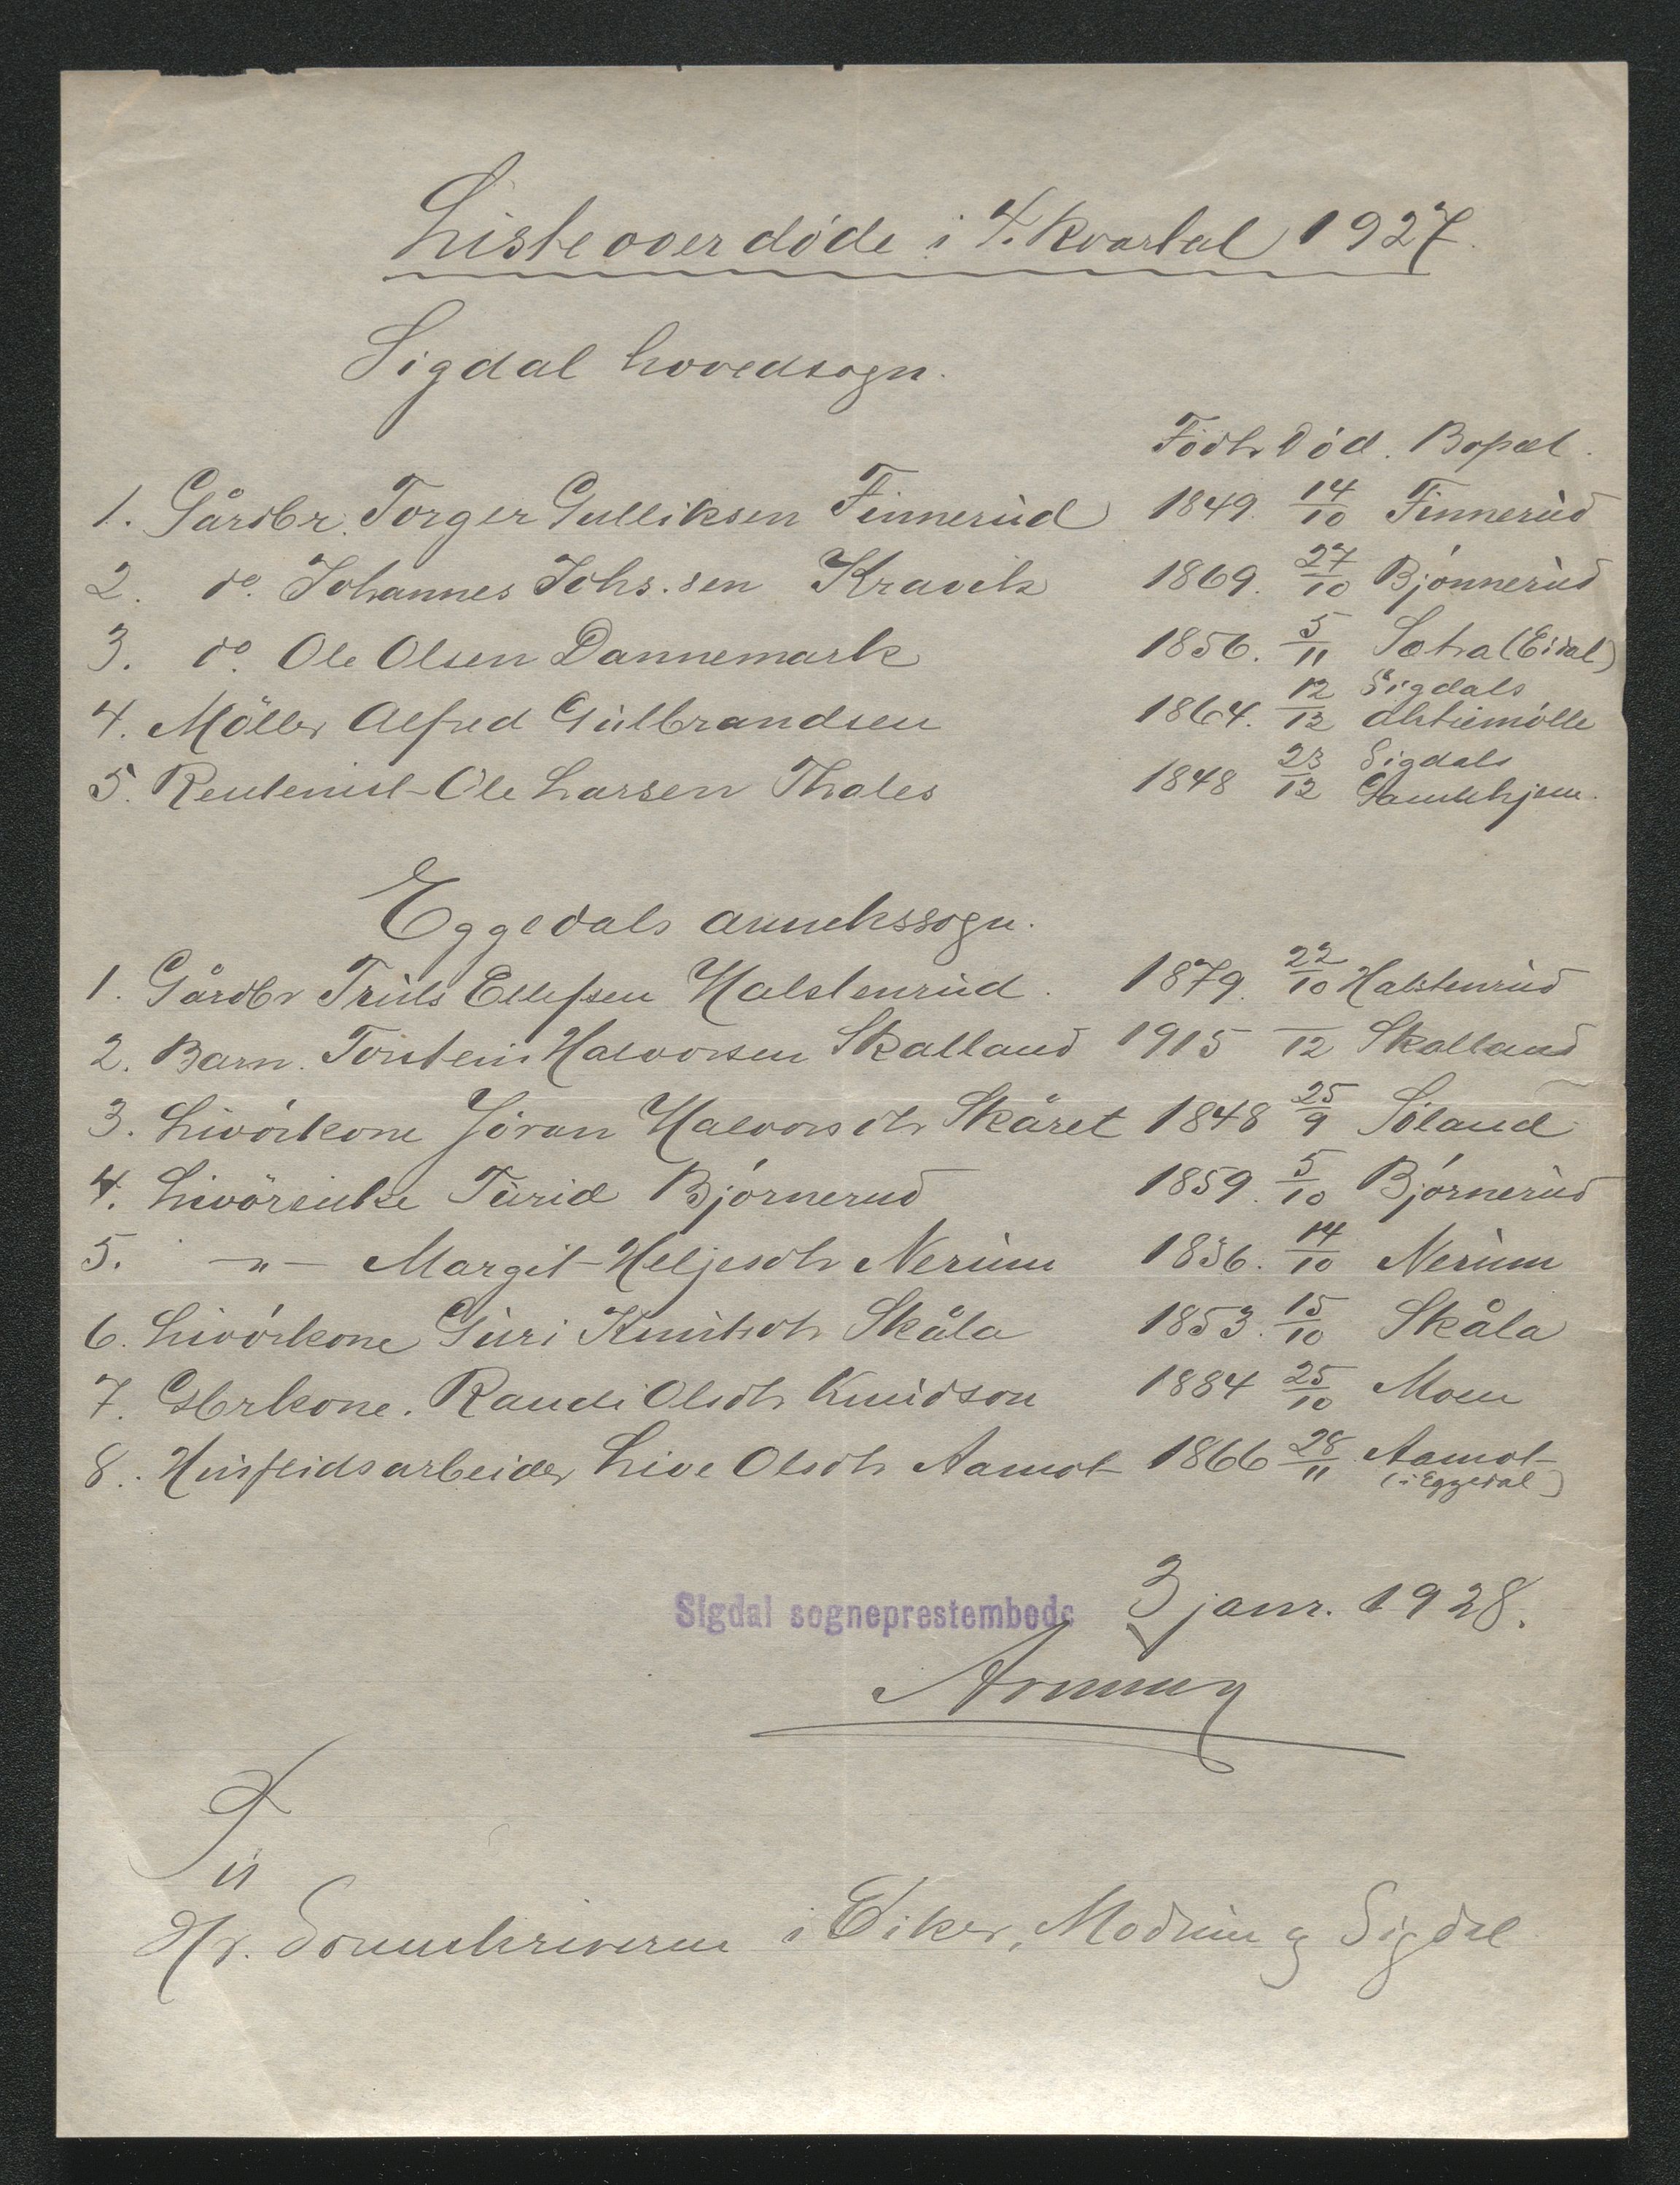 Liste over døde i 4. kvartal 1927.
Sigdal hovedsogn.
Født Død. Bopæl.
1. Gårdbr. Torger Gulliksen Finnerud 1849. 14/10 Finnerud
2. do. Johannes Johs.sen Kravik 1869. 27/10 Bjønnerud
3. do. Ole Olsen Dannemark 1856. 5/11 Sotra (Eidal)
4. Möller Alfred Gulbrandsen 1864. 12/12 Sigdals aktiemölle
5. Rentenist Ole Larsen Thales 1848 23/12 Sigdals Gamlehjem.
Eggedals annekssogn.
1. Gårdbr Truls Ellefsen Halstenrud. 1879. 22/10 Halstenrud
2. Barn. Torstein Halvorsen Skalland 1915 —/12 Skalland
3. Livörkone Jöran Halvorsdtr Skåret 1848 25/9 Söland
4. Livörenke Turid Bjórnerud 1859. 5/10 Bjórnerud
5. -"- Margit Heljesdtr Nerum 1836. 14/10 Nerum
6. Livörkone Guri Knutsdtr Skåla 1853. 15/10 Skåla
7. Gbrkone. Randi Olsdtr Knudson 1884 25/10 Moen
8. Husflidsarbeider Live Olsdtr Aamot 1866 28/11 Aamot
(i Eggedal)
Sigdal sogneprestembede 3 janr. 1928.
Til
Hr. Sorenskriveren i Eiker, Modum og Sigdal